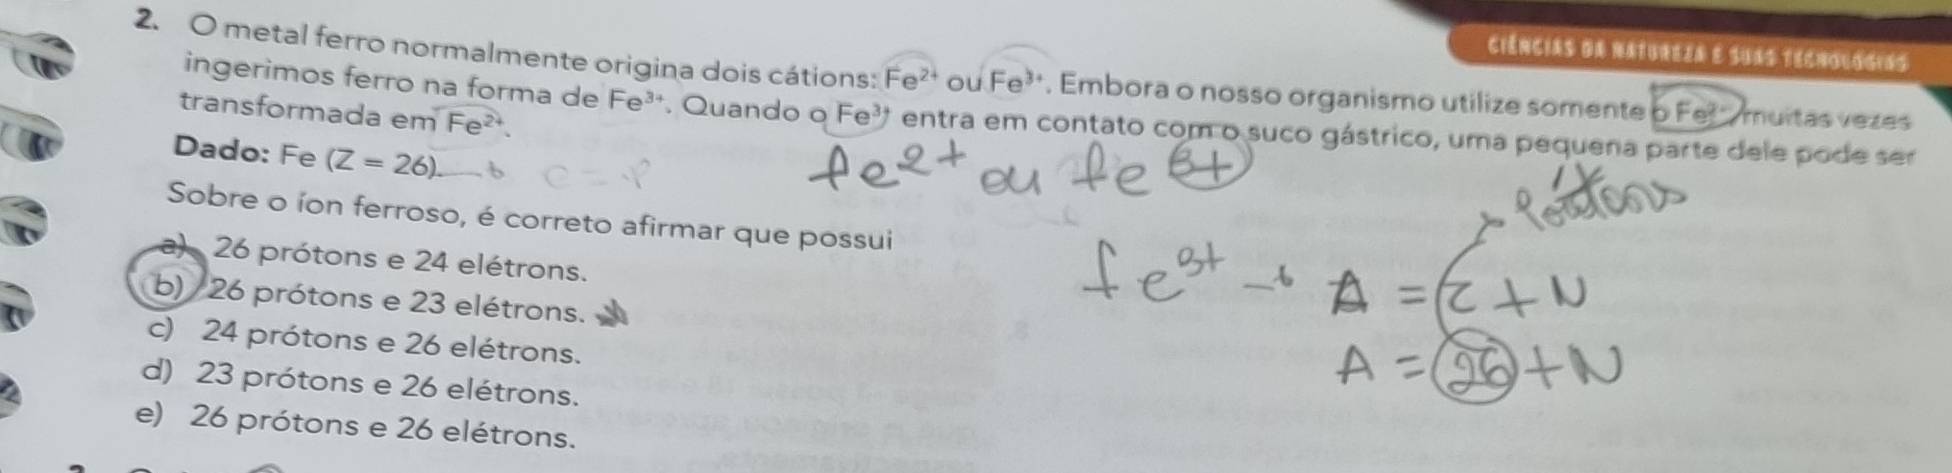 CIÊNCIAS DA NATUREZA E SUAS TECNOLOGIAS
2. O metal ferro normalmente origina dois cátions: Fe²⁺ ou Fe³⁺. Embora o nosso organismo utilize somente o Fe²⁺, muitas vezes
ingerimos ferro na forma de Fe³⁺. Quando o Fe³⁺ entra em contato com o suco gástrico, uma pequena parte dele pode ser
transformada em Fe²⁺.
Dado: Fe (Z = 26).
C = P
fe²⁺ ou fe³⁺
Sobre o íon ferroso, é correto afirmar que possui
a) 26 prótons e 24 elétrons.
b) 26 prótons e 23 elétrons.
c) 24 prótons e 26 elétrons.
d) 23 prótons e 26 elétrons.
e) 26 prótons e 26 elétrons.
fe³⁺ → A = Z + N
A = 26 + N